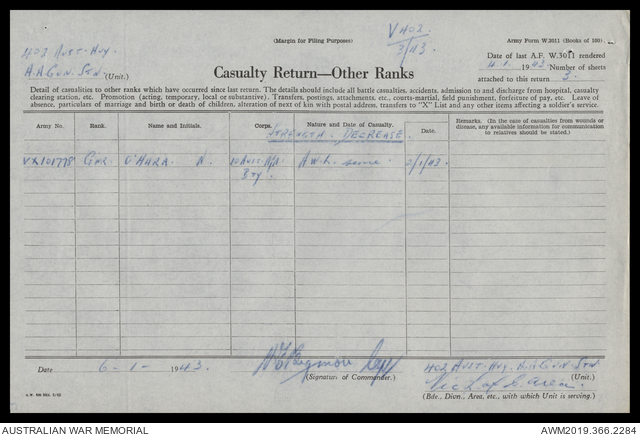 V402
3/43
(Margin for Filing Purposes)
Army Form W.3011 (Books of 100).
Aust. Hvy.
A.A Gun. Stn. (Unit.)
Date of last A.F. W.3011 rendered
4.1.1943. Number of sheets
attached to this return 3.
Casualty Return—Other Ranks
Detail of casualties to other ranks which have occurred since last return. The details should include all battle casualties, accidents, admission to and discharge from hospital, casualty
clearing station, etc. Promotion (acting, temporary, local or substantive). Transfers, postings, attachments, etc., courts-martial, field punishment, forfeiture of pay, etc. Leave of
absence, particulars of marriage and birth or death of children, alteration of next of kin with postal address, transfers to "X" List and any other items affecting a soldier's service.
Army No.
Rank.
Name and Initials.
Corps.
Nature and Date of Casualty.
Date.
Remarks. (In the case of casualties from wounds or
disease, any available information for communication
to relatives should be stated.)
STRENGTH. DECREASE.
VX101778 Gnr. O'Hara. N. 10 Aust A/A A.W.L. since. 2/1/43.
Bty
Date 6-1-1943.
(Signature of Commander.)
402 Aust. Hvy. A.A Gun. Stn
(Unit.)
Vic L of C. Area.
(Bde., Divn., Area, etc., with which Unit is serving.)
AUSTRALIAN WAR MEMORIAL
AWM2019.366.2284